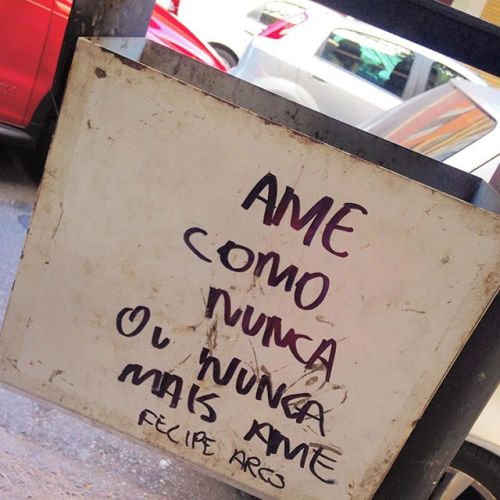 AME
COMO
NUNCA
OU NUNCA
MAIS AME
FELIPE ARCS